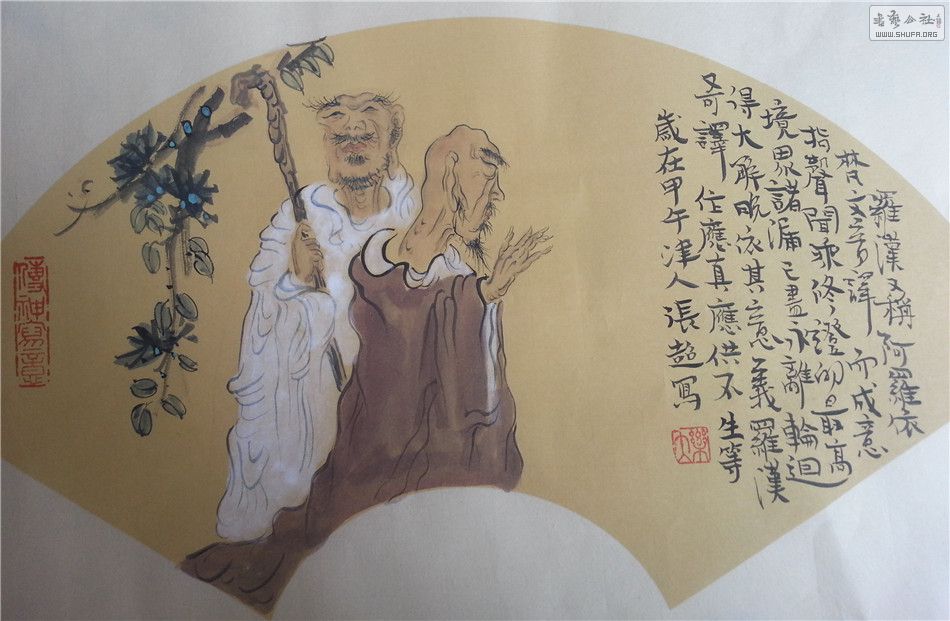 羅漢又稱阿羅依
梵文音譯而成意
指聲聞乘修證的最高
境界諸漏已盡永離輪迴
得大解脫依其意義羅漢
又可譯作應真應供不生等
歲在甲午津人張超寫
傳神寫意
書藝公社
WWW.SHUFA.ORG